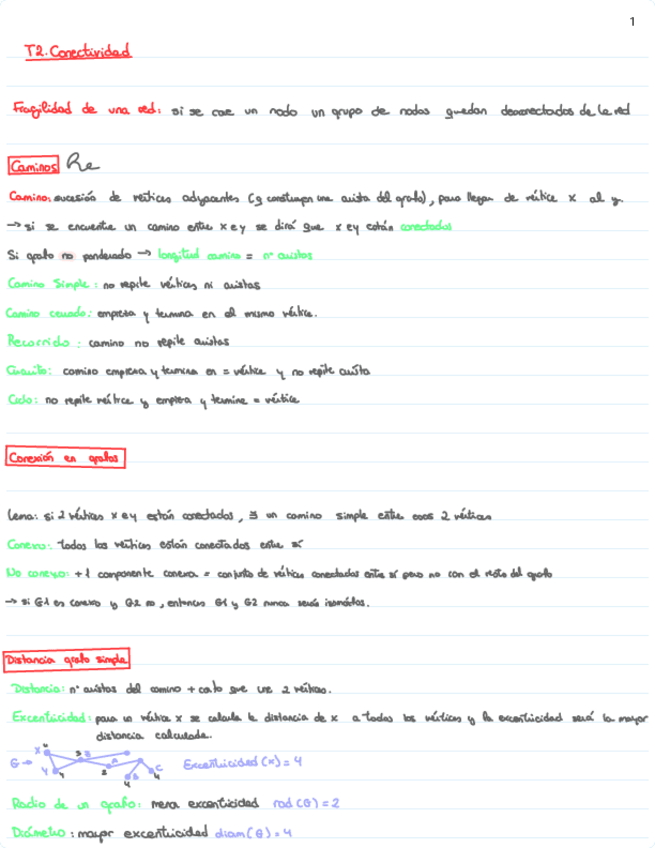 1
T2. Conectividad
Fragilidad de una red: si se cae un nodo un grupo de nodos quedan desconectados de la red
Caminos Re
Camino: sucesión de vértices adyacentes (q constituyen una arista del grafo), para llegar de vértice x al y.
→ si se encuentre un camino entre x e y se dirá que x e y están conectados
Si grafo no ponderado → longitud camino = nº aristas
Camino Simple: no repite vértices ni aristas
Camino cerrado: empieza y termina en el mismo vértice.
Recorrido: camino no repite aristas
Circuito: camino empieza y termina en = vértice y no repite arista
Ciclo: no repite vértice y empieza y termine = vértice
Conexión en grafos
Lema: si 2 vértices x e y están conectados, ∃ un camino simple entre esos 2 vértices
Conexo: todos los vértices están conectados entre sí
No conexo: +1 componente conexa = conjunto de vértices conectadas entre sí pero no con el resto del grafo
→ si G1 es conexo y G2 no, entonces G1 y G2 nunca serán isomorfos.
Distancia grafo simple
Distancia: nº aristas del camino + corto que une 2 vértices.
Excentricidad: para un vértice x se calcula la distancia de x a todos los vértices y la excentricidad será la mayor
distancia calculada.
G → x Excentricidad (x) = 4
Radio de un grafo: menor excentricidad rad (G) = 2
Diámetro: mayor excentricidad diam (G) = 4